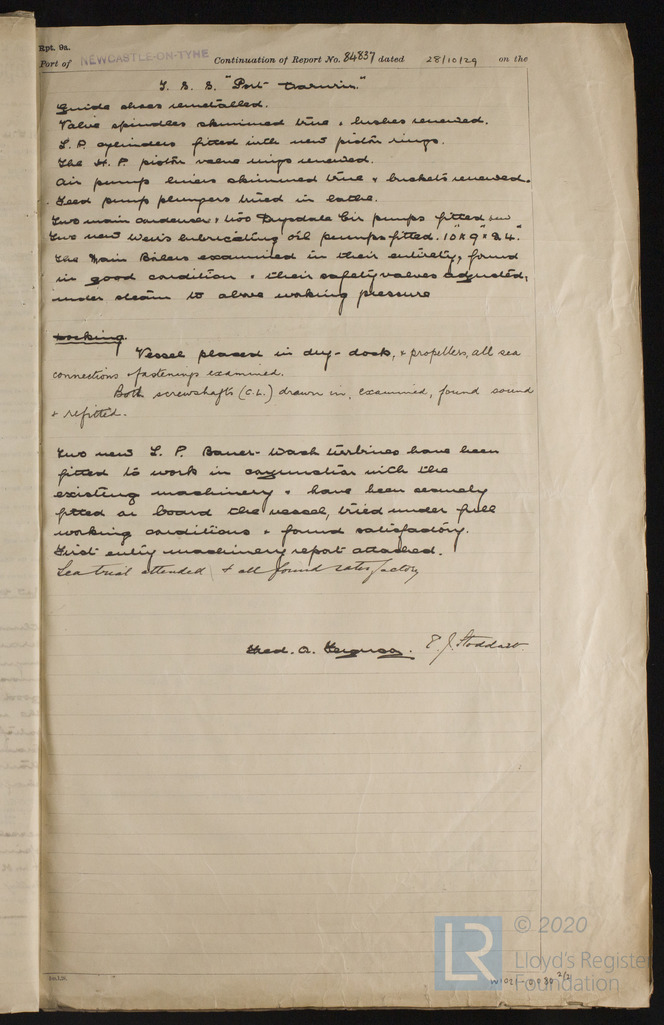 Rpt. 9a.
Port of NEWCASTLE-ON-TYNE Continuation of Report No. 84837 dated 28/10/29 on the
T. S. S. "Port Darwin"
Guide shoes remetalled.
Valve spindles skimmed true & bushes renewed.
L.P. cylinders fitted with new piston rings.
The H.P. piston valve rings renewed.
Air pump liners skimmed true & buckets renewed.
Feed pump plungers trued in lathe.
Two main condenser & two Drysdale Cir pumps fitted new
Two new Weir's lubricating oil pumps fitted. 10" x 9" x 24".
The Main Boilers examined in their entirety, found
in good condition & their safety valves adjusted,
under steam to above working pressure
Docking.
Vessel placed in dry-dock, & propellers, all sea
connections & fastenings examined.
Both screwshafts (C.L.) drawn in, examined, found sound
& refitted.
Two new L. P. Bauer-Wach turbines have been
fitted to work in conjunction with the
existing machinery & have been securely
fitted on board the vessel, tried under full
working conditions & found satisfactory.
First entry machinery report attached.
Sea trial attended & all found satisfactory
Fred. A. Ferguson. E. J. Stoddart.
© 2020
LR Lloyd's Register
Foundation
W1021-0080 2/2